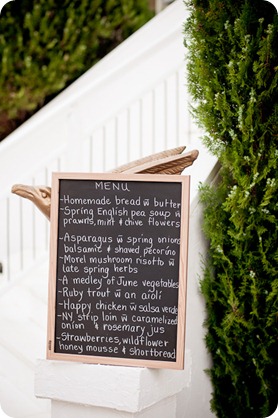 MENU
-Homemade bread w butter
-Spring English pea soup w
prawns, mint & chive flowers
-Asparagus w spring onions
balsamic & shaved pecorino
-Morel mushroom risotto w
late spring herbs
-A medley of June vegetables
-Ruby trout w an aïoli
-Happy chicken w salsa verde
-NY strip loin w caramelized
onion & rosemary jus
-Strawberries, wildflower
honey mousse & shortbread